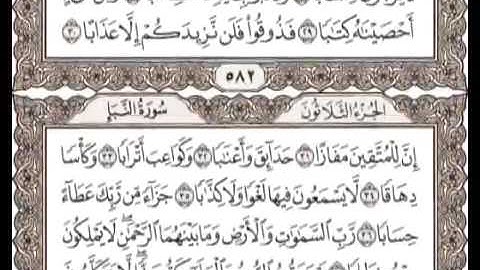 أَحْصَيْنَٰهُ كِتَٰبًا ٢٩ فَذُوقُوا۟ فَلَن نَّزِيدَكُمْ إِلَّا عَذَابًا ٣٠
٥٨٢
الجزء الثلاثون سورة النبإ
إِنَّ لِلْمُتَّقِينَ مَفَازًا ٣١ حَدَآئِقَ وَأَعْنَٰبًا ٣٢ وَكَوَاعِبَ أَتْرَابًا ٣٣ وَكَأْسًا
دِهَاقًا ٣٤ لَّا يَسْمَعُونَ فِيهَا لَغْوًا وَلَا كِذَّٰبًا ٣٥ جَزَآءً مِّن رَّبِّكَ عَطَآءً
حِسَابًا ٣٦ رَّبِّ ٱلسَّمَٰوَٰتِ وَٱلْأَرْضِ وَمَا بَيْنَهُمَا ٱلرَّحْمَٰنِ ۖ لَا يَمْلِكُونَ